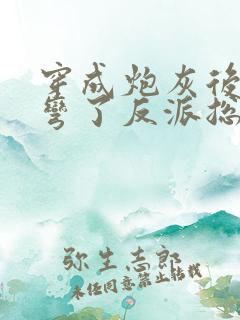 穿成炮灰後
彎了反派拯
弥生志郎
未经同意禁止转载